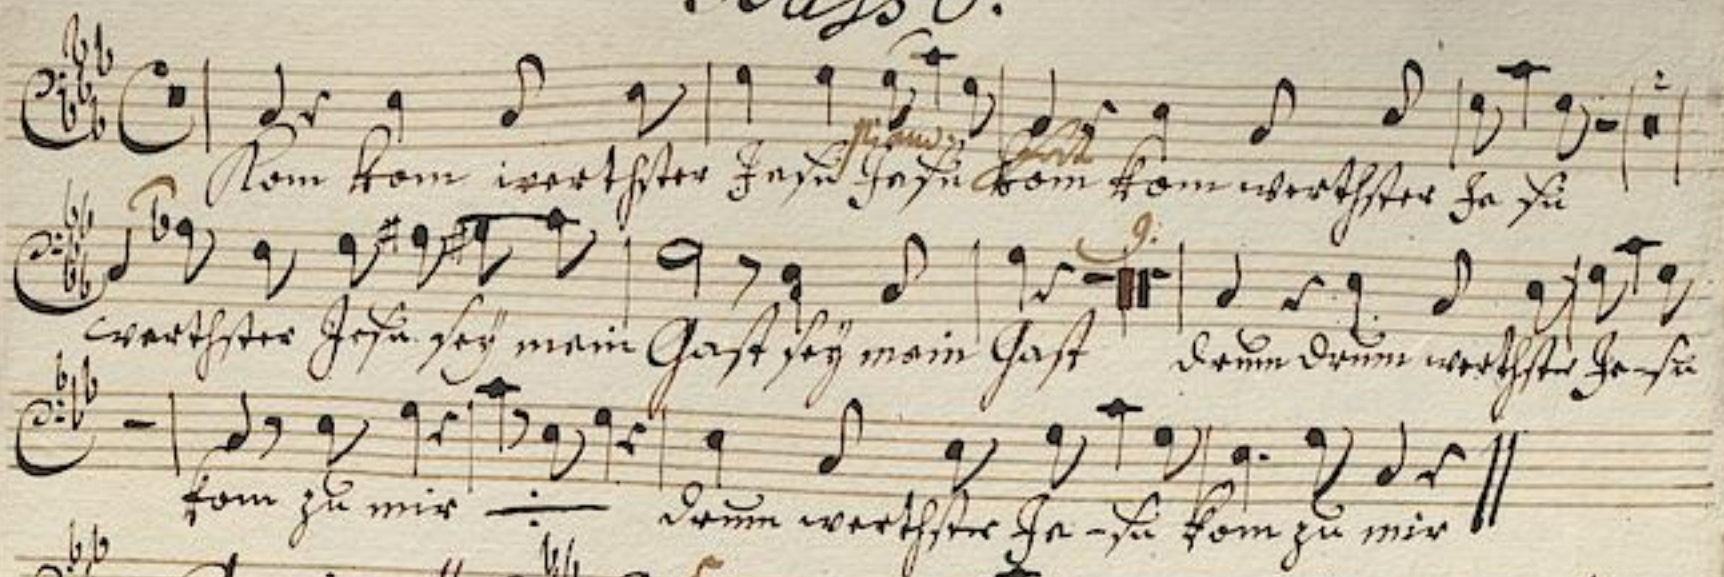 Basso.
Kom kom werthster Jesu Jesu kom kom werthster Je su
werthster Jesu sey mein Gast sey mein Gast drum drum werthster Je-su
kom zu mir drum werthster Je-su kom zu mir